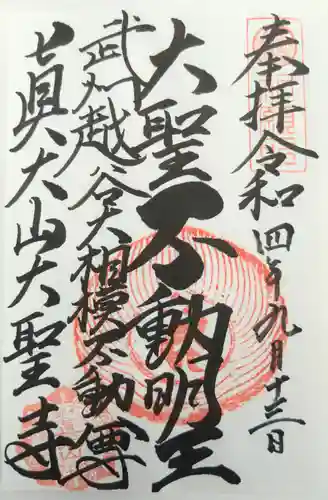 奉拝令和四年九月十三日
大聖不動明王
武州越谷大相模不動尊
真大山大聖寺